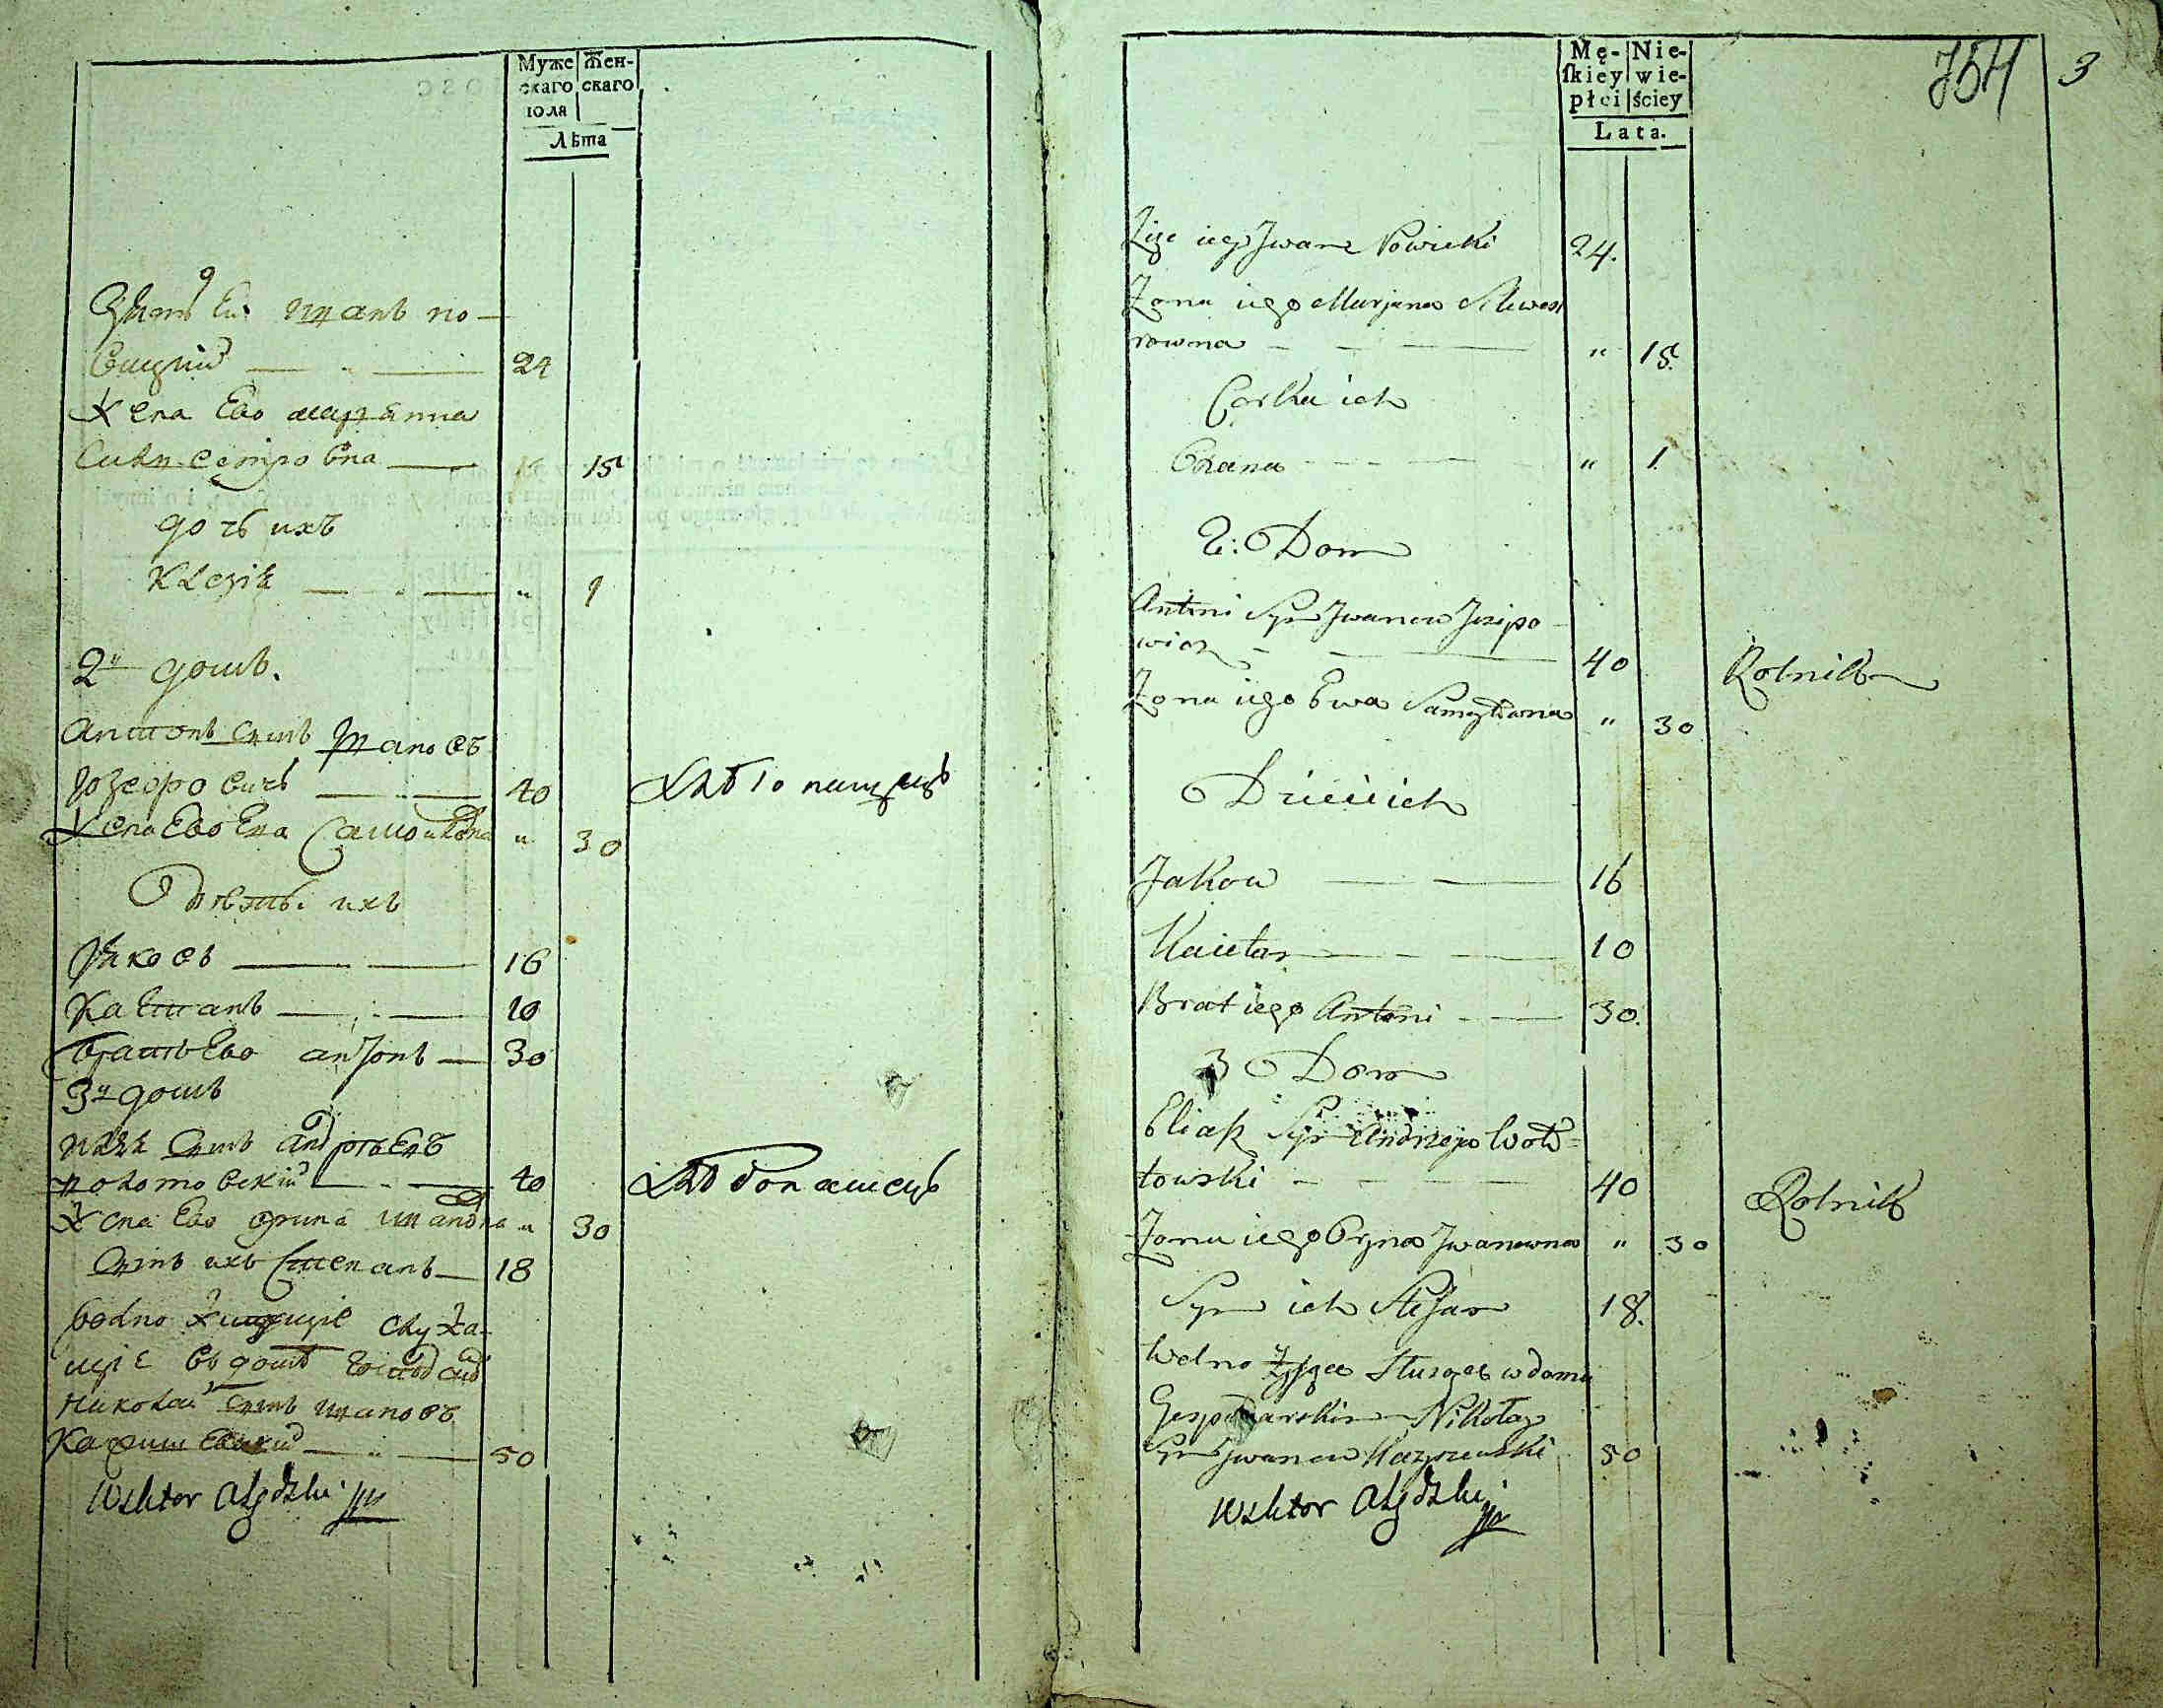 Муже
скаго
поля
Жен-
скаго
Лѣта
Зять Ево Иванъ но-
вицкий 24
Жена Ево марянна
Силвестровна 18
дочь ихъ
1
2й домъ.
Антонъ сынъ Ивановъ
Юзефовичъ 40 Хлѣбопашецъ
Жена Ево Ева Самойловна " 30
Дѣти ихъ
Яковъ 16
Каетанъ 10
братъ Ево антонъ 30
3й домъ
Илья сынъ андрѣевъ
волотовский 40 Хлѣбопашецъ
Жена Ево орина иванона " 30
сынъ ихъ Степанъ 18
волно живущие служа-
щіе въ домѣ
николай сынъ ивановъ
50
Wiktor
Mę-
skiey
płci
Nie-
wie-
ściey
Lata.
754 3
Zięć iego Jwan Nowicki 24.
Żona iego Marjana Silwest
rowna " 18.
Corka ich
" 1.
2: Dom
Antoni Syn Jwanow Jozipo-
wicz 40 Rolnik
Żona iego Ewa Samuylowna " 30
Dzieci ich
Jakow 16
Kaietan 10
Brat iego Antoni 30.
3 Dom
Eliasz Syn Andrzeja Woło-
towski 40 Rolnik
Żona iego Oryna Jwanowna " 30
Syn ich Stefan 18.
Wolno Żyjące Służące w domu
Gospodarskim Nikołay
Syn Jwanow Kazyszewski 50
Wiktor